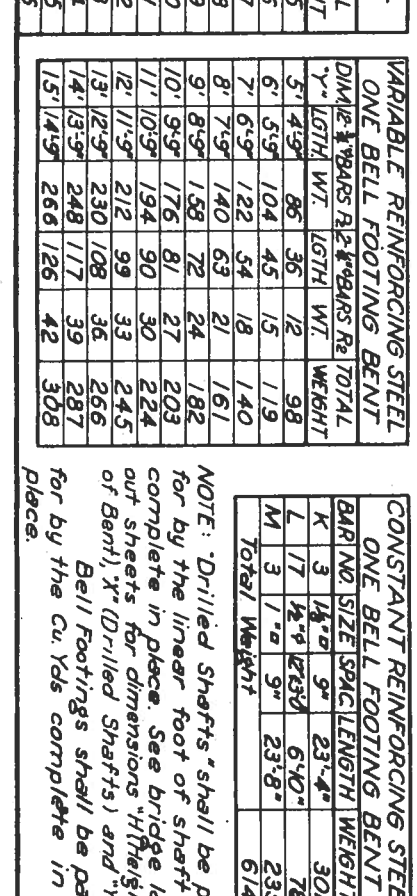 VARIABLE REINFORCING STEEL
ONE BELL FOOTING BENT
DIM. 12 ¾"ᶲ BARS R1 2 ½"ᶲ BARS R2 TOTAL
"Y" LGTH. WT. LGTH WT. WEIGHT
5' 4'-9" 86 36 12 98
6' 5'-9" 104 45 15 119
7' 6'-9" 122 54 18 140
8' 7'-9" 140 63 21 161
9' 8'-9" 158 72 24 182
10' 9'-9" 176 81 27 203
11' 10'-9" 194 90 30 224
12' 11'-9" 212 99 33 245
13' 12'-9" 230 108 36 266
14' 13'-9" 248 117 39 287
15' 14'-9" 266 126 42 308
CONSTANT REINFORCING STEE
ONE BELL FOOTING BENT
BAR NO. SIZE SPAC LENGTH WEIGH
K 3 9" 23'-4" 30
L 17 ½"ᶲ 6'-10"
M 3 1"□ 9" 23'-8" 23
Total Weight 614
NOTE: "Drilled Shafts" shall be p
for by the linear foot of shaft
complete in place. See bridge la
out sheets for dimensions "H"(Heig
of Bent), "X" (Drilled Shafts) and "Y
Bell Footings shall be pa
for by the Cu. Yds complete in
place.